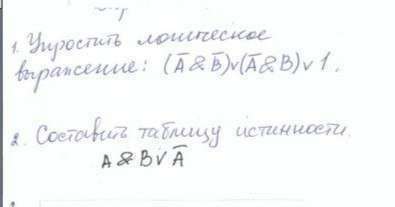 1. Упростить логическое
выражение: (A̅ & B̅)v(A̅ & B)v 1.
2. Составить таблицу истинности.
A & B V A̅